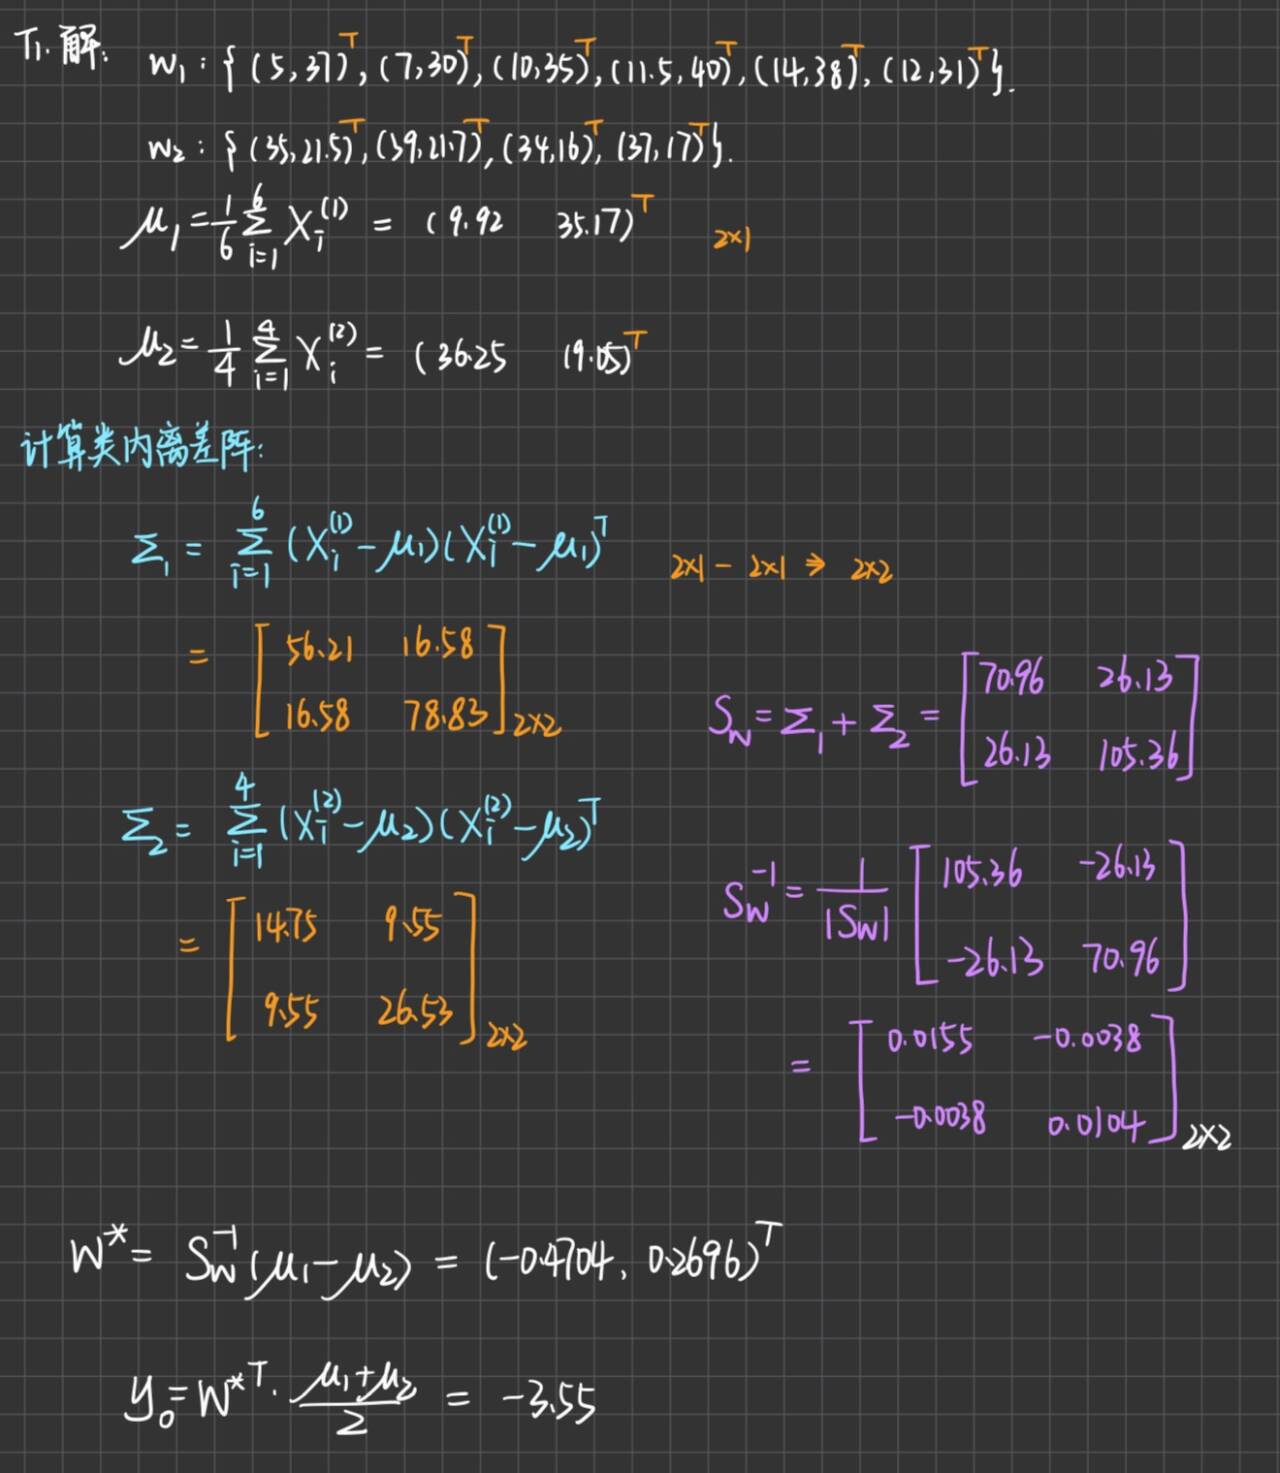 T1. 解: w₁ : { (5,37)ᵀ, (7,30)ᵀ, (10,35)ᵀ, (11.5,40)ᵀ, (14,38)ᵀ, (12,31)ᵀ}.
w₂ : { (35,21.5)ᵀ, (39,21.7)ᵀ, (34,16)ᵀ, (37,17)ᵀ}.
μ₁ = 1/6 Σ_{i=1}^{6} X_i^{(1)} = (9.92 35.17)ᵀ 2×1
μ₂ = 1/4 Σ_{i=1}^{4} X_i^{(2)} = (36.25 19.05)ᵀ
计算类内离差阵:
Σ₁ = Σ_{i=1}^{6} (X_i^{(1)} - μ₁)(X_i^{(1)} - μ₁)ᵀ 2×1 - 2×1 → 2×2
= [56.21 16.58
16.58 78.83]2×2
Σ₂ = Σ_{i=1}^{4} (X_i^{(2)} - μ₂)(X_i^{(2)} - μ₂)ᵀ
= [14.75 9.55
9.55 26.53]2×2
S_W = Σ₁ + Σ₂ = [70.96 26.13
26.13 105.36]
S_W^{-1} = 1/|S_W| [105.36 -26.13
-26.13 70.96]
= [0.0155 -0.0038
-0.0038 0.0104]2×2
W* = S_W^{-1}(μ₁ - μ₂) = (-0.4704, 0.2696)ᵀ
y₀ = W*ᵀ · (μ₁+μ₂)/2 = -3.55